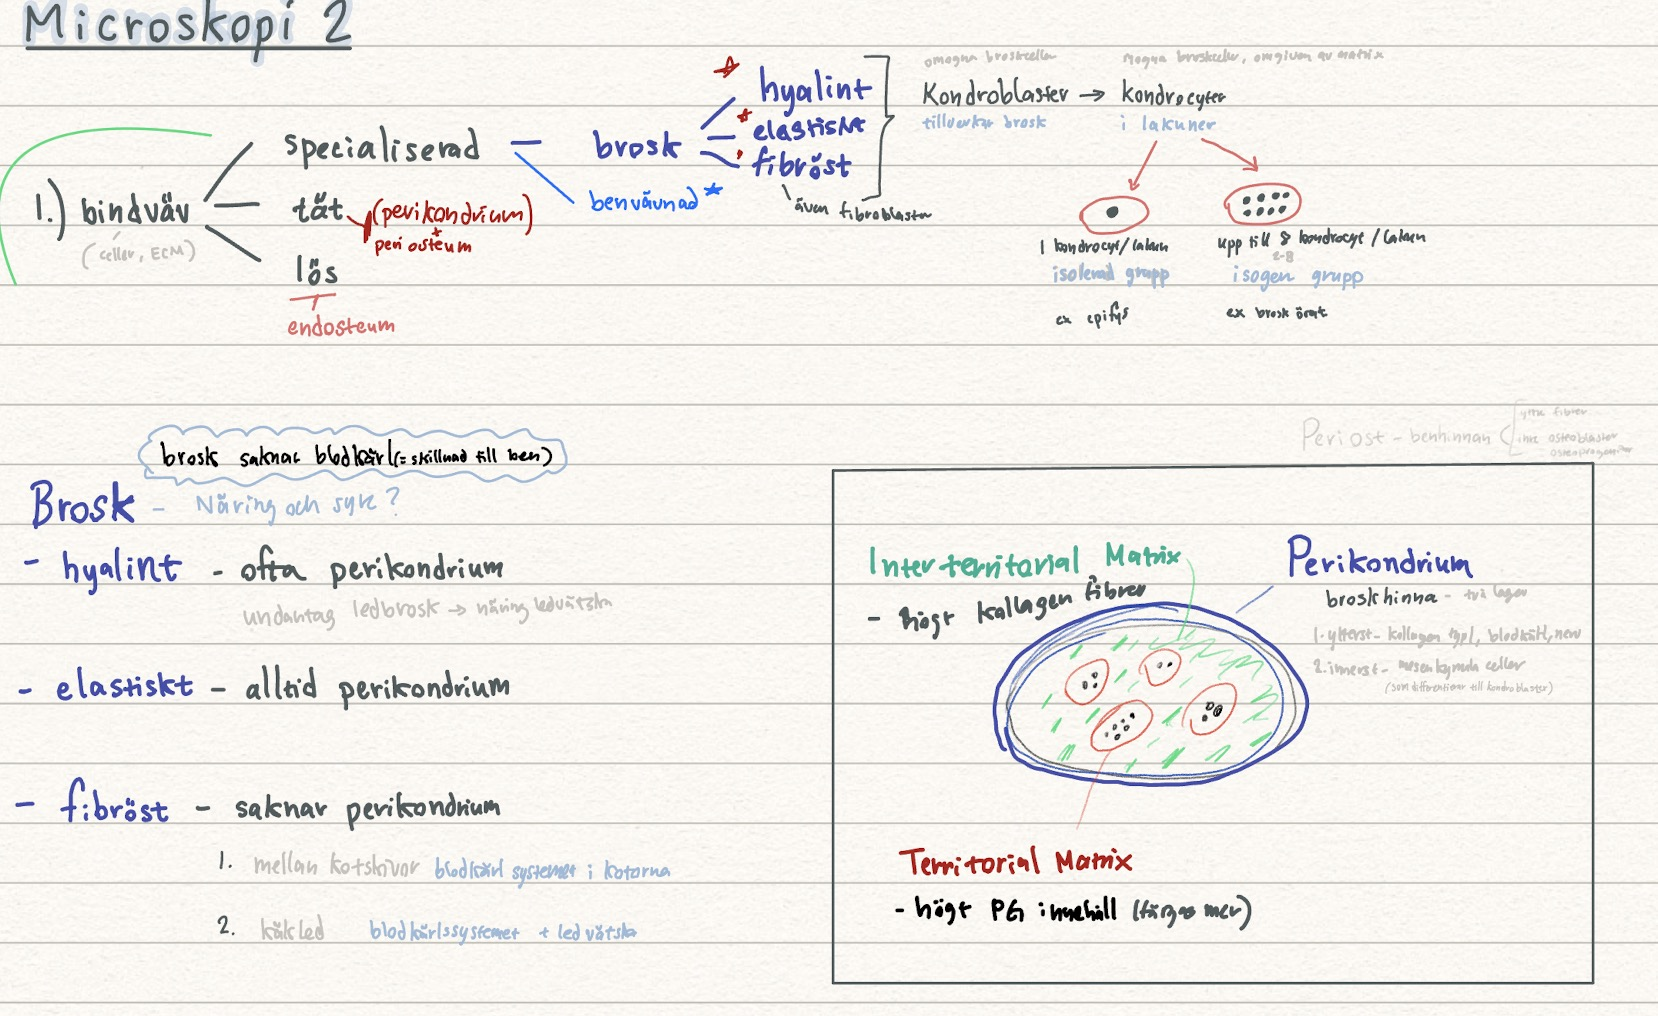 Microskopi 2
1.) bindväv
(celler, ECM)
specialiserad
tät (perikondrium)
+
periosteum
lös
endosteum
brosk
benvävnad *
hyalint
elastiskt
fibröst
även fibroblaster
omogna broskceller
Kondroblaster → kondrocyter
tillverkar brosk
mogna broskceller, omgiven av matrix
i lakuner
1 kondrocyt/lakun
isolerad grupp
ex epifys
upp till 8 kondrocyt/lakun
2-8
isogen grupp
ex brosk örat
brosk saknar blodkärl (= skillnad till ben)
Brosk - Näring och syre?
- hyalint - ofta perikondrium
undantag ledbrosk → näring ledvätska
- elastiskt - alltid perikondrium
- fibröst - saknar perikondrium
1. mellan kotskivor blodkärl systemet i kotorna
2. käkled blodkärlssystemet + ledvätska
Periost - benhinnan
yttre fibrer
inre osteoblaster
Interterritorial Matrix
- högt kollagen fibrer
Perikondrium
broskhinna - två lager
1. ytterst - kollagen typ1, blodkärl, nerv
2. innerst - mesenkymala celler
(som differentierar till kondroblaster)
Territorial Matrix
- högt PG innehåll (färgas mer)